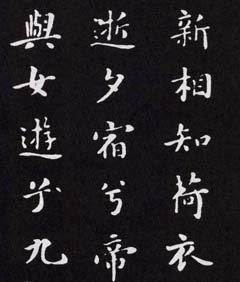 新相知荷衣
逝夕宿兮帝
與女遊兮九